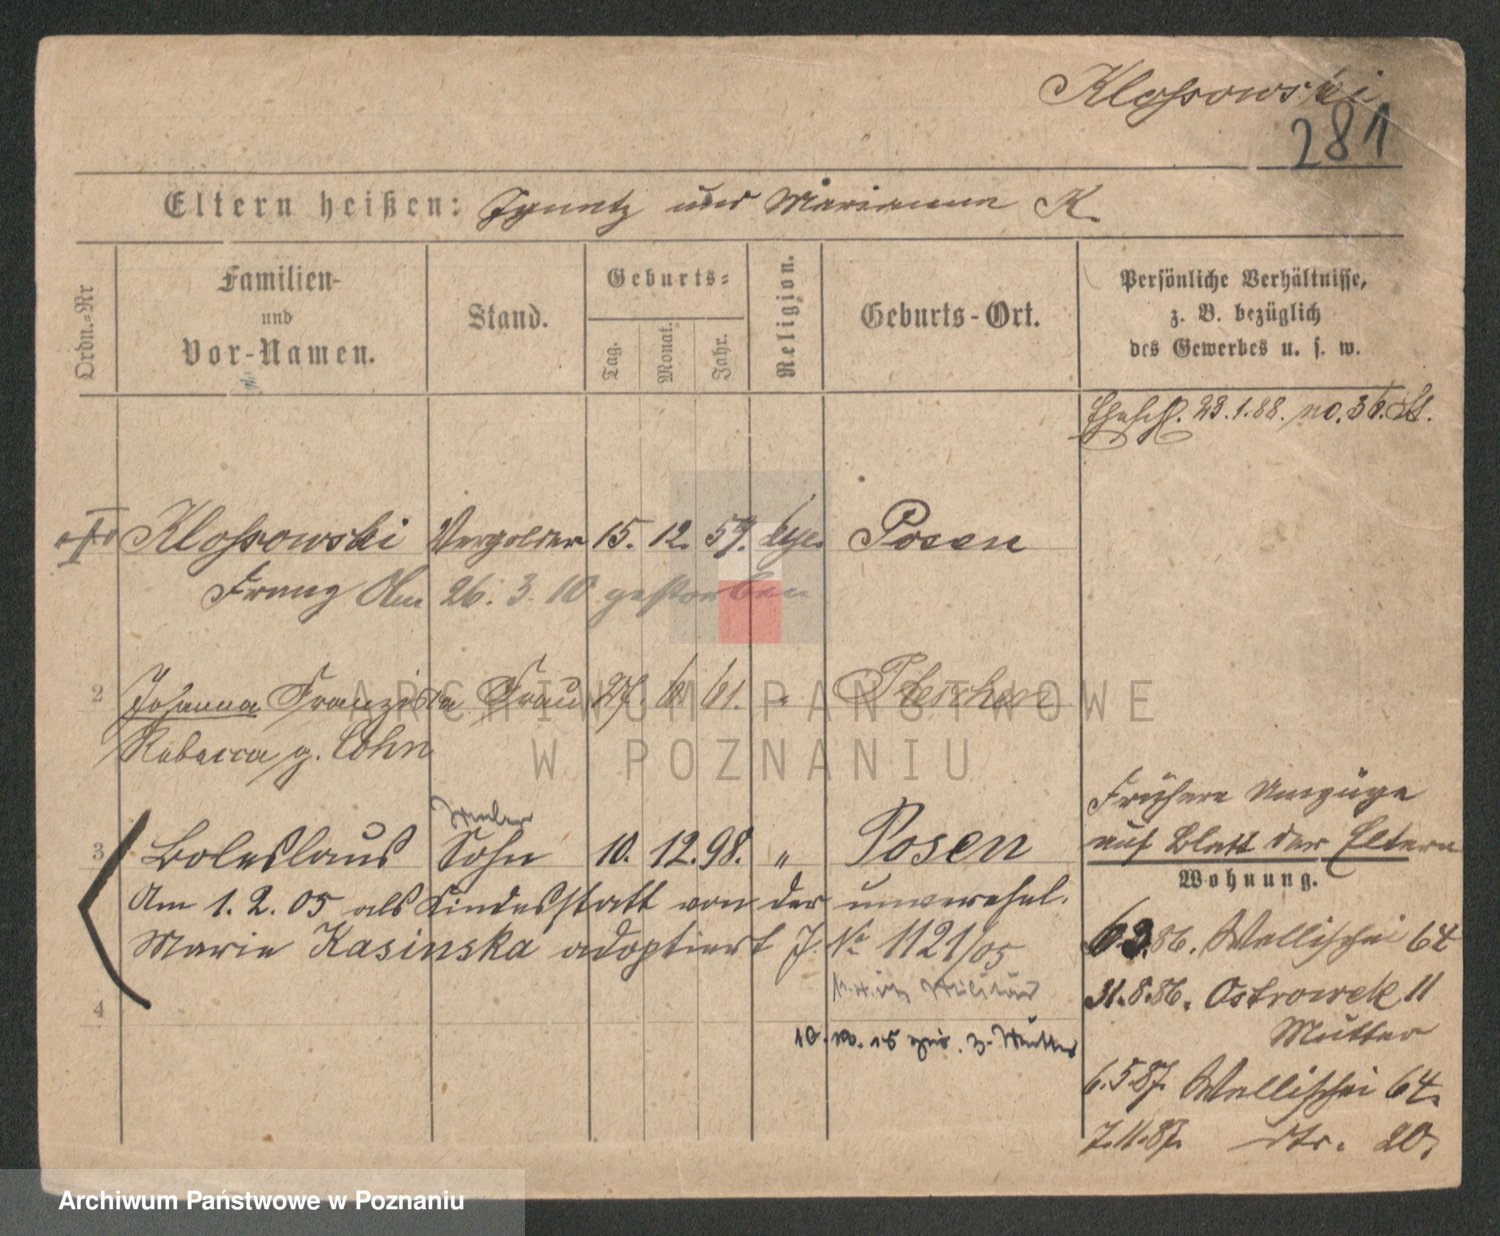 Klossowski
281
Eltern heißen: Ignatz und Marianna K.
Ordn.-Nr
Familien-
und
Vor-Namen.
Stand.
Geburts-
Tag.
Monat.
Jahr.
Religion.
Geburts-Ort.
Persönliche Verhältnisse,
z. B. bezüglich
des Gewerbes u. s. w.
Ehesch. 23.1.88. no. 36. St.
Klossowski Vergolder 15. 12. 59. Posen
Franz Am 26. 3. 10 gestorben
2 Johanna Franziska Frau 27. 6. 61. " Pleschen
Rebecca g. Cohn
3 Boleslaus Sohn 10. 12. 98. " Posen
Am 1. 2. 05 als Kindesstatt von der unverehel.
Marie Kasinska adoptiert J. No 1121/05
Militär
4
10. 10. 15 z. Mutter
Frühere Umzüge
auf Blatt der Eltern
Wohnung.
6.3.86. Wallischei 64
31.8.86. Ostrowek 11
Mutter
6.5.87. Wallischei 64.
7.11.87. dto. 20,
ARCHIWUM PAŃSTWOWE
W POZNANIU
Archiwum Państwowe w Poznaniu